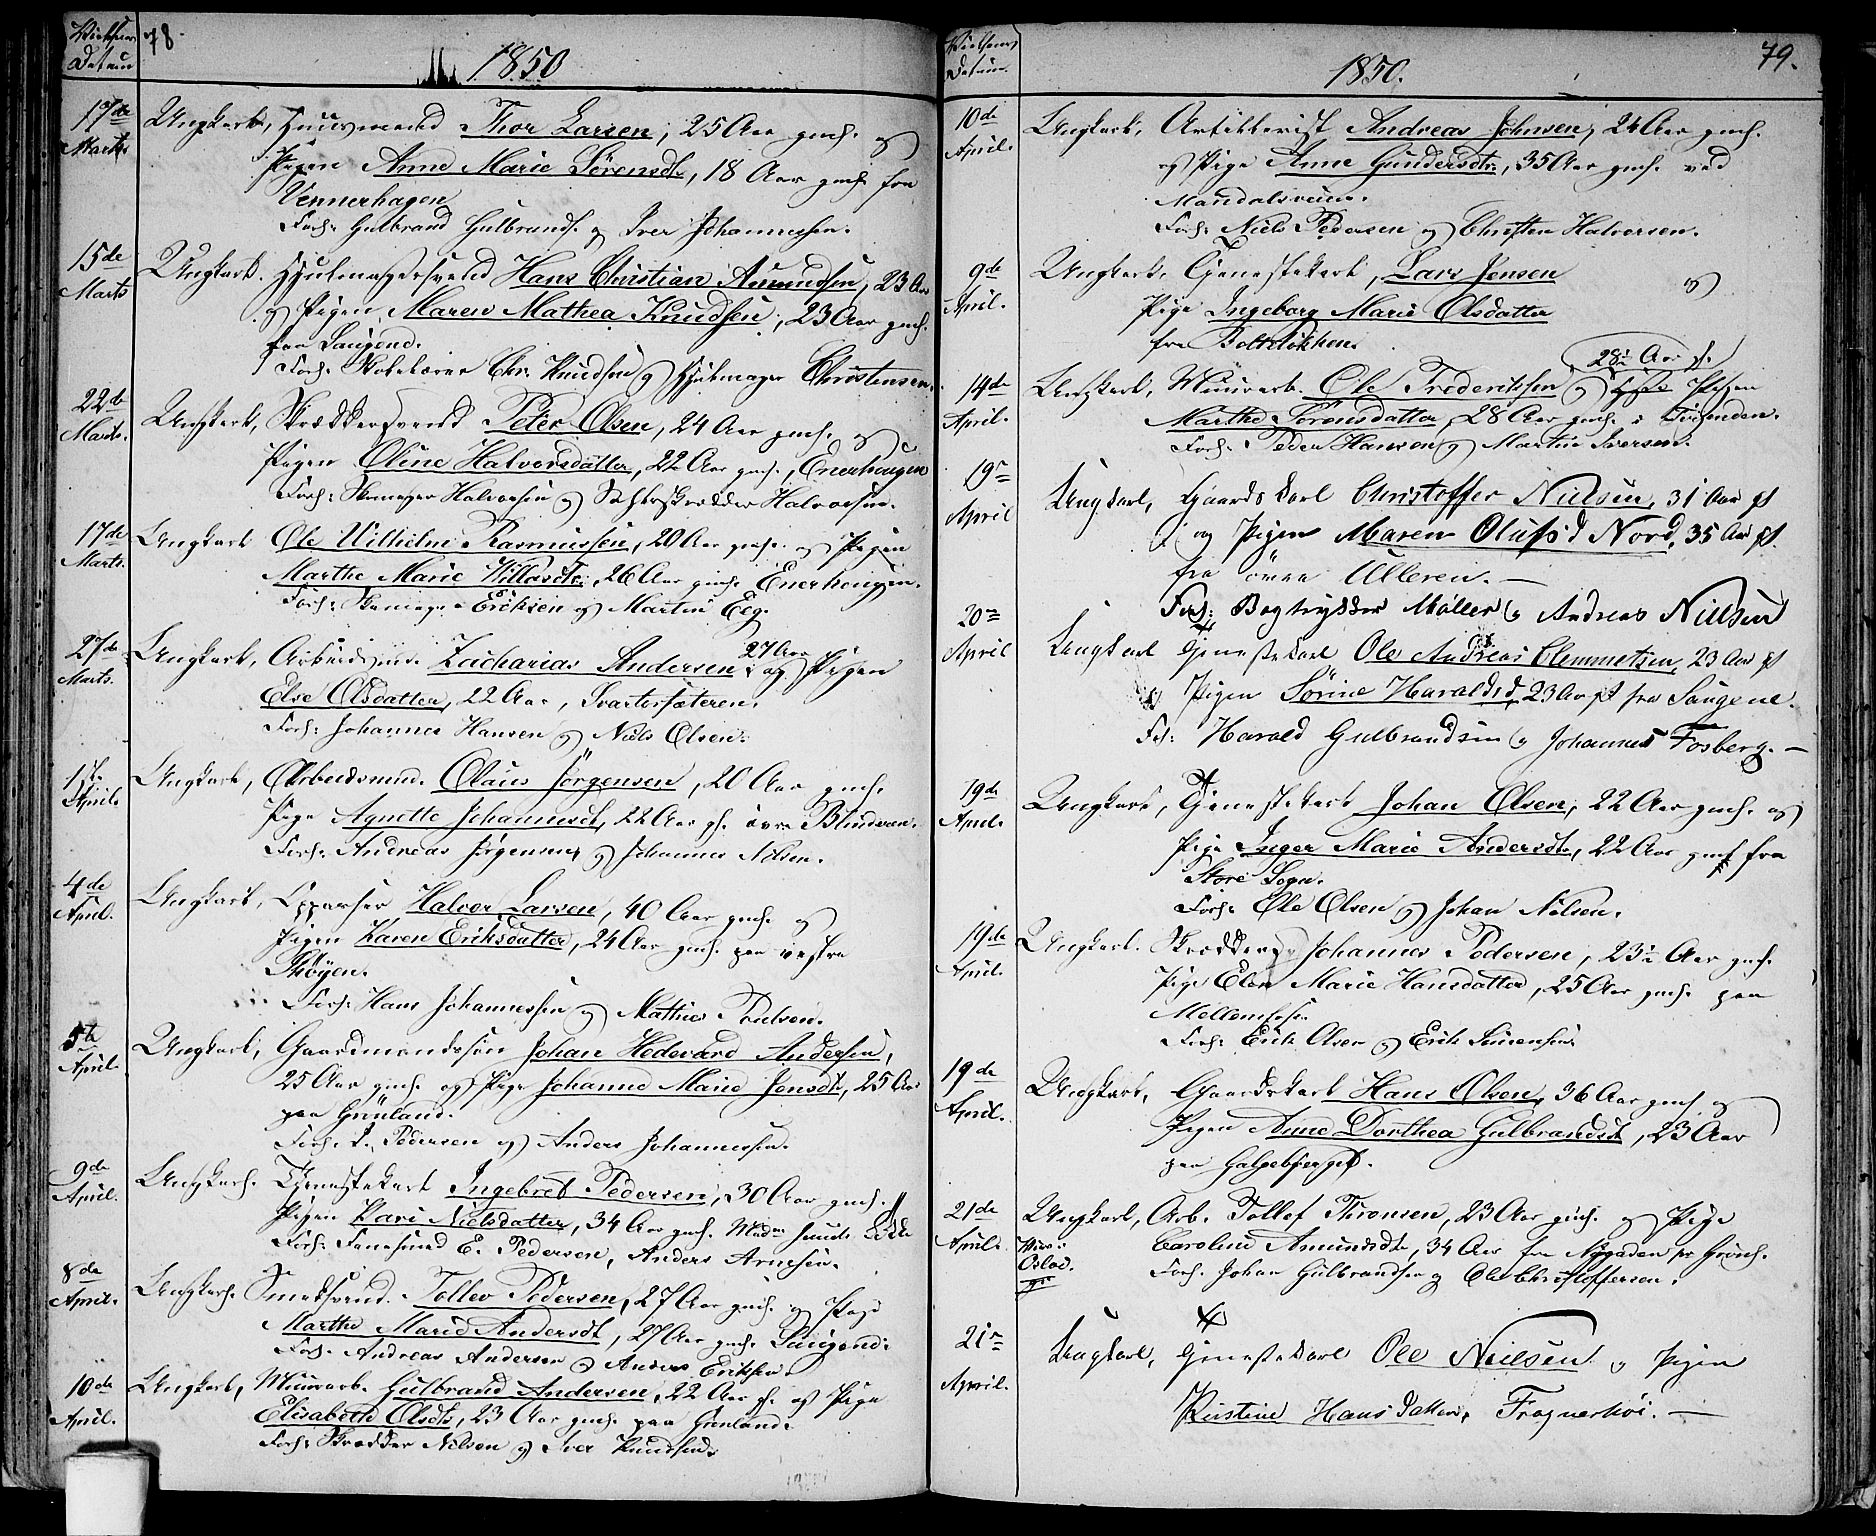 Vielsens Datum
78
1850
17de Marts
Ungkarl, Huusmand Thor Larsen, 25 Aar gmh. og
Pigen Anne Marie Sörensdtr, 18 Aar gmh. fra
Vennerhagen
Forl: Gulbrand Gulbrands. og Iver Johannessen.
15de Marts
Ungkarl. Hjulmagersvend Hans Christian Amundsen, 23 Aar
og Pigen Maren Mathea Knudsen, 23 Aar gmh.
fra Saugene.
Forl: Chr. Knudsen og Hjulmager Christensen.
22de Marts.
Ungkarl, Skræddersvend Peter Olsen, 24 Aar gmh. og
Pigen Oline Halvorsdatter, 22 Aar gmh., Enerhougen
Forl: Skomager Halvorsen og Halvorsen.
17de Marts.
Ungkarl Ole Wilhelm Rasmussen, 20 Aar gmh. og Pigen
Marthe Marie Willasdtr. 26 Aar gmh. Enerhougen.
Forl: Skomager Eriksen og Martin Eeg.
27de Marts.
Ungkarl, Arbeidsm. Zacharias Andersen 27 Aar og Pigen
Else Olsdatter, 22 Aar, Svartorsæteren.
Forl: Johannes Hansen og Niels Olsen.
1ste April.
Ungkarl, Arbeidsmd. Claus Jörgensen, 20 Aar gmh.
Pige Agnette Johannesd, 22 Aar gh. övre Blindern.
Forl: Andreas Jörgensen og Johannes Nilsen.
4de April.
Ungkarl, Halvor Larsen, 40 Aar gmh. og
Pigen Karen Eriksdatter, 24 Aar gmh. paa vestre
Thöyen.
Forl: Hans Johannessen og Mathias Poulsen.
5te April
Ungkarl, Gaardmandssön Johan Hedevard Andersen,
25 Aar gmh. og Pige Johanne Marie Jonsdtr, 25 Aar
paa Grönland.
Forl: L. Pedersen og Anders Johannessen.
9de April.
Ungkarl. Tjenestekarl Ingebret Pedersen, 30 Aar gmh.
Pigen Kari Nielsdatter, 34 Aar gmh. Madm Lökke
Forl: E. Pedersen, Anders Arnesen.
8de April.
Ungkarl. Smedsvend. Tollev Pedersen, 27 Aar gmh. og Pige
Marthe Marie Andersdt, 27 Aar gmh. Saugene.
Forl: Andreas Andersen og Anders Eriksen.
10de April.
Ungkarl, Muurarb. Gulbrand Andersen, 22 Aar gh. og Pige
Elisabeth Olsdtr, 23 Aar gmh. paa Grönland.
Forl: Skrædder Nilsen og Iver Knudsen.
Vielsens Datum.
1850.
79.
10de April.
Ungkarl, Artillerist Andreas Johnsen, 24 Aar gmh.
og Pige Anne Gundersdtr, 35 Aar gmh. ved
Mandalsveien.
Forl: Niels Pedersen og Christen Halvorsen.
9de April.
Ungkarl, Tjenestekarl, Lars Jensen og
Pige Ingeborg Marie Olsdatter
fra Bolteløkken.
14de April.
28½ Aar gf.
Ungkarl, Muurarb. Ole Frederiksen og Pigen
Marthe Sörensdatter, 28 Aar gmh. i
Forl: Peder Hansen og Martin Iversen.
19de April
Ungkarl, Gaardskarl Christoffer Nielsen, 31 Aar gf
og Pigen Maren Olufsd Nord, 35 Aar gf.
fra övre Ulleren. —
Forl: Bogtrykker Møller og Andreas Nielsen
20de April
Ungkarl Tjenestekarl Ole Andreas Clemmetsen, 23 Aar gf
og Pigen Sörine Haraldsd, 23 Aar gf fra Saugene.
Forl: Harald Gulbrandsen og Johannes Fosberg. —
19de April.
Ungkarl, Tjenestekarl Johan Olsen, 22 Aar gmh. og
Pige Inger Marie Andersdtr, 22 Aar gmh fra
Store Sogn.
Forl: Ole Olsen og Johan Nilsen.
19de April.
Ungkarl. Skrædder Johannes Pedersen, 23½ Aar gmh.
Pige Elen Marie Hansdatter, 25 Aar gmh. paa
Forl: Erik Olsen og Erik
19de April.
Ungkarl, Gaardskarl Hans Olsen, 36 Aar gmh. og
Pigen Anne Dorthea Gulbrandsdt, 23 Aar
paa Galgebjerget.
21de April.
Viet i Oslo.
Ungkarl, Arb. Tollef Thronsen, 23 Aar gmh. og Pige
Caroline Amundsdtr, 34 Aar fra Nygaden
Forl: Johan Gulbrandsen og Ole Christoffersen.
21de April.
Ungkarl, Tjenestekarl Ole Nielsen. og Pigen
Kirstine Hansdatter, Frognerhöi. —